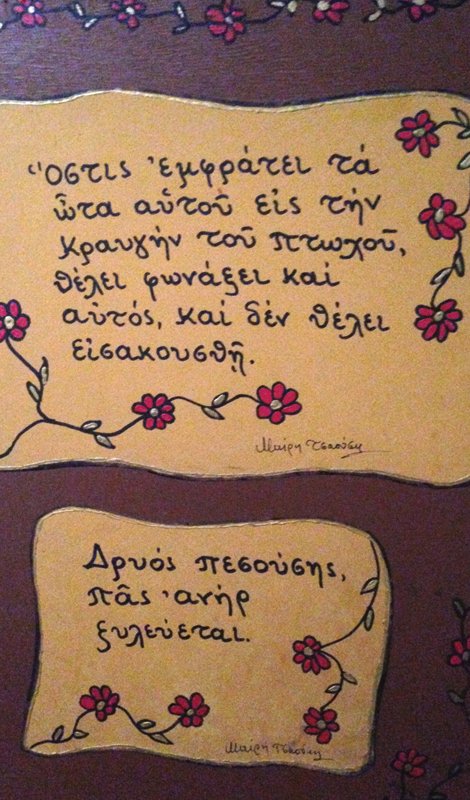 Ὅστις ἐμφράτει τά
ὦτα αὐτοῦ εἰς τήν
κραυγήν τοῦ πτωχοῦ,
θέλει φωνάξει καί
αὐτός, καί δέν θέλει
εἰσακουσθῇ.
Μαίρη Τσαούση
Δρυός πεσούσης,
πᾶς ἀνήρ
ξυλεύεται.
Μαίρη Τσαούση